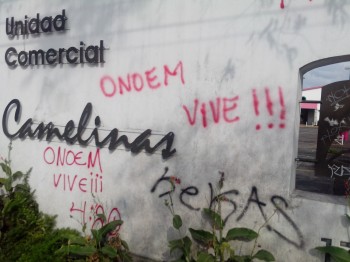 Unidad
Comercial
Camelinas
ONDEM
VIVE!!!
ONDEM
VIVE¡¡¡
4:20